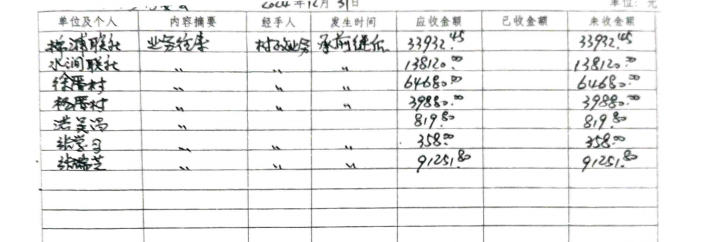 2024年12月31日 单位：元
单位及个人 内容摘要 经手人 发生时间 应收金额 已收金额 未收金额
联社 业务往来 承前结 33932.45 33932.45
水涧联社 〃 〃 〃 138120.00 138120.00
徐厝村 〃 〃 〃 64680.00 64680.00
杨厝村 〃 〃 〃 39880.00 39880.00
洪 〃 819.80 819.80
张 〃 〃 〃 358.00 358.00
张 芝 〃 〃 〃 91251.80 91251.80